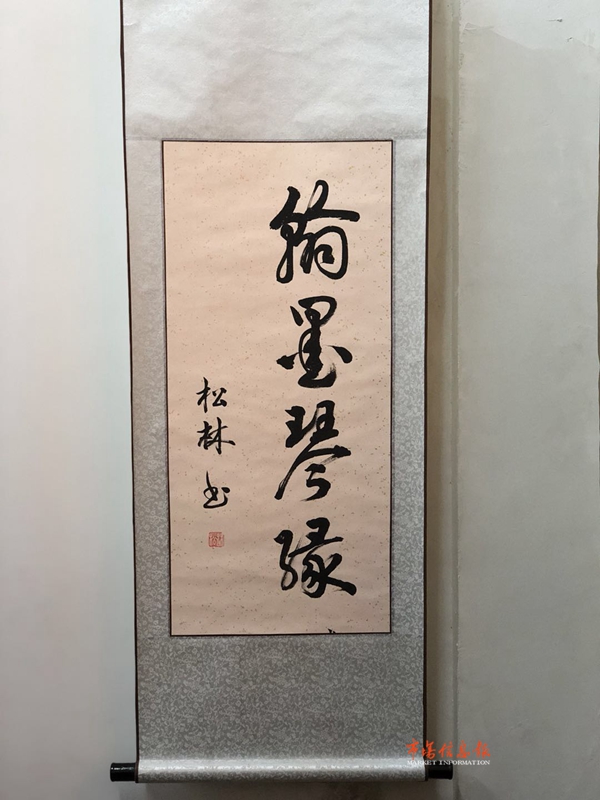 翰墨琴缘
松林书
市场信息报
MARKET INFORMATION